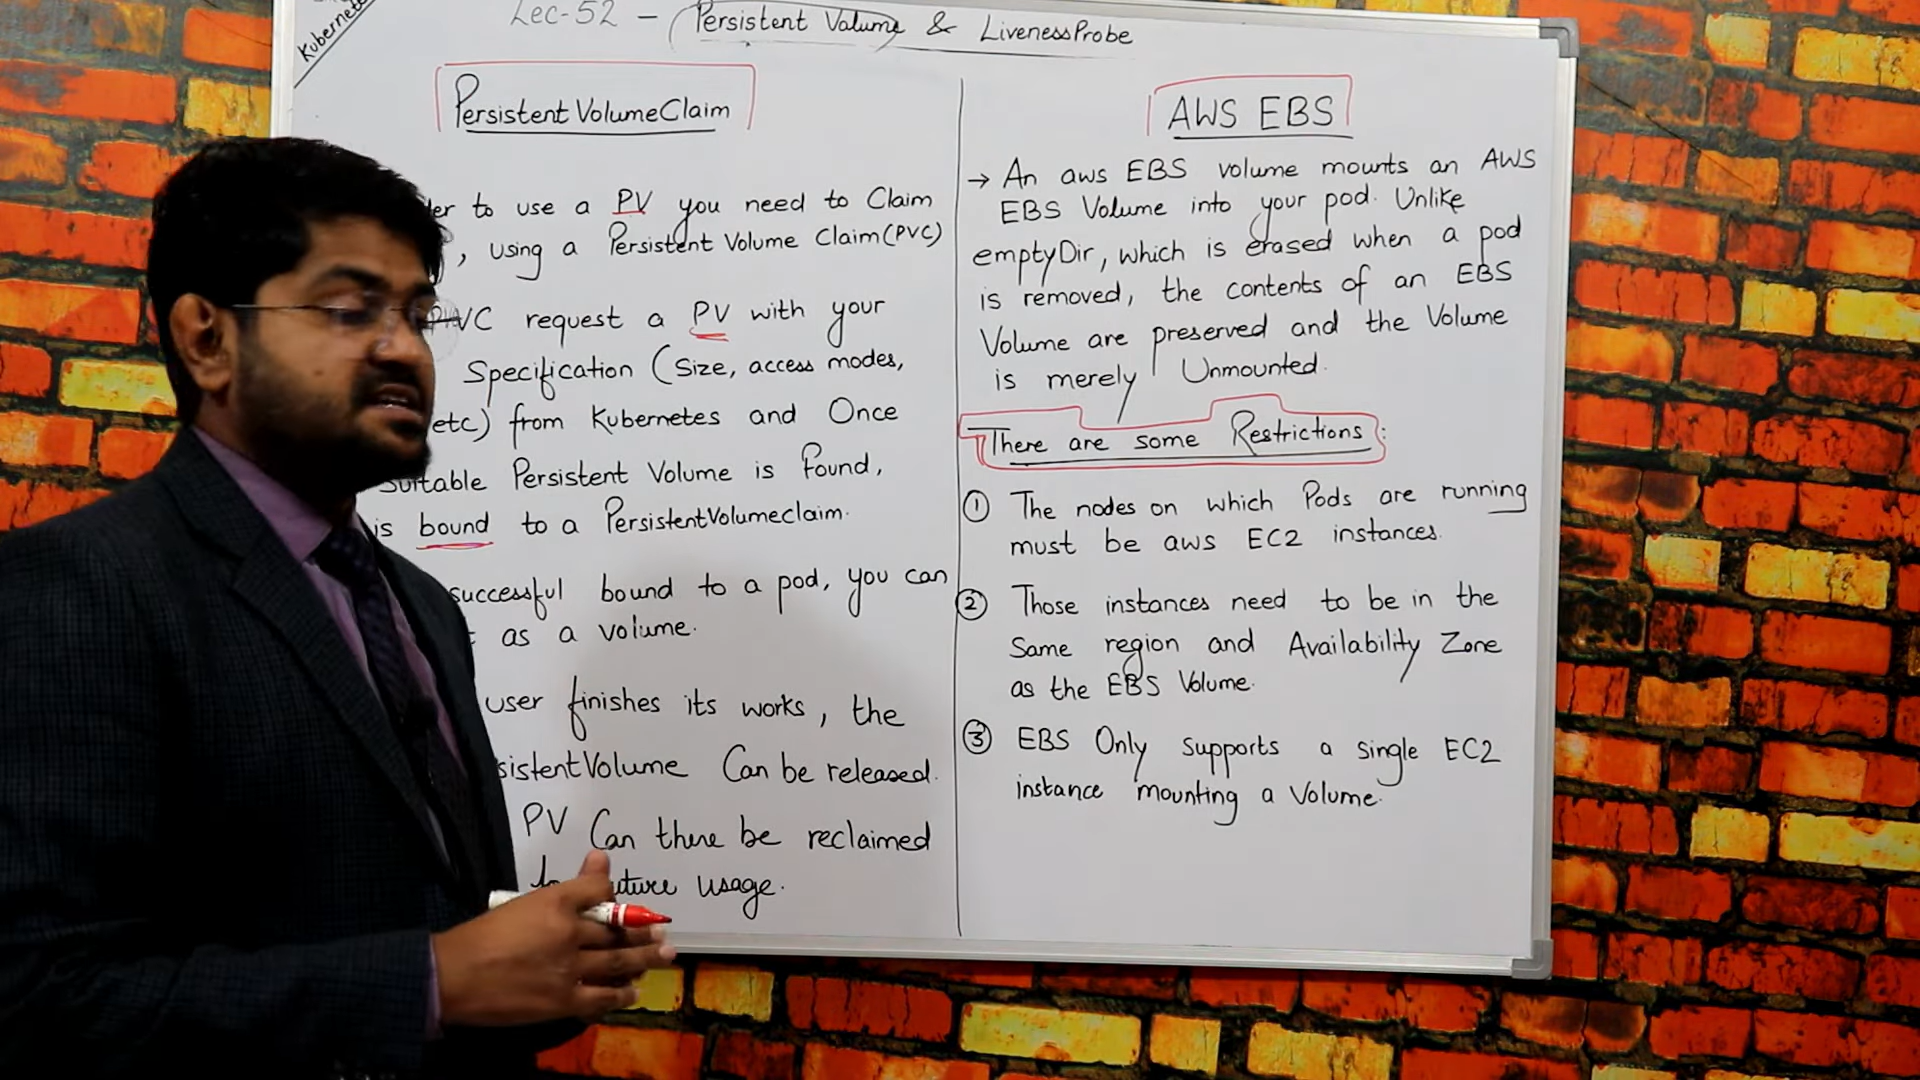 Kubernetes
Lec-52 - Persistent Volume & LivenessProbe
PersistentVolumeClaim
to use a PV you need to Claim
, using a Persistent Volume Claim (PVC)
VC request a PV with your
Specification (Size, access modes,
etc) from Kubernetes and Once
Suitable Persistent Volume is Found,
is bound to a PersistentVolumeclaim.
successful bound to a pod, you can
as a volume.
user finishes its works, the
sistentVolume Can be released.
PV Can there be reclaimed
usage.
AWS EBS
→ An aws EBS volume mounts an AWS
EBS Volume into your pod. Unlike
emptyDir, which is erased when a pod
is removed, the contents of an EBS
Volume are preserved and the Volume
is merely Unmounted.
There are some Restrictions:
① The nodes on which Pods are running
must be aws EC2 instances.
② Those instances need to be in the
Same region and Availability Zone
as the EBS Volume.
③ EBS Only supports a single EC2
instance mounting a Volume.